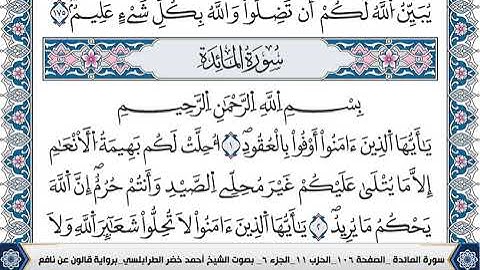 يُبَيِّنُ اَللَّهُ لَكُمْ أَن تَضِلُّواْ وَاللَّهُ بِكُلِّ شَےْءٍ عَلِيمٌ ١٧٥
سُورَةُ المَائِدَة
بِسْمِ اِللَّهِ اِلرَّحْمَٰنِ اِلرَّحِيمِ
يَٰأَيُّهَا اَلذِينَ ءَامَنُواْ أَوْفُواْ بِالْعُقُودِ ١ أُحِلَّتْ لَكُم بَهِيمَةُ اُلْأَنْعَٰمِ
إِلَّا مَا يُتْلَىٰ عَلَيْكُمْ غَيْرَ مُحِلِّے اِلصَّيْدِ وَأَنتُمْ حُرُمٌ إِنَّ اَللَّهَ
يَحْكُمُ مَا يُرِيدُ ٢ يَٰأَيُّهَا اَلذِينَ ءَامَنُواْ لَا تُحِلُّواْ شَعَٰٓئِرَ اَللَّهِ وَلَا
سورة المائدة _الصفحة ١٠٦_الحزب ١١_الجزء ٦_ بصوت الشيخ أحمد خضر الطرابلسي_برواية قالون عن نافع